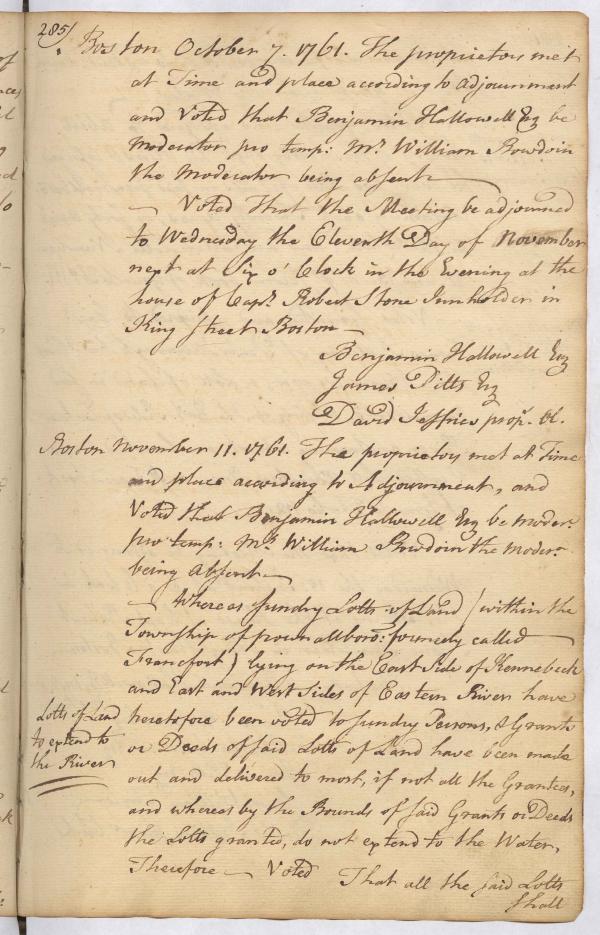 285/
Boston October 7. 1761. The proprietors met
at Time and place according to adjournment
and Voted that Benjamin Hallowell Esq be
Moderator pro temp: Mr. William Bowdoin
the Moderator being absent
— Voted That the Meeting be adjourned
to Wednesday the Eleventh Day of November
next at Six o' Clock in the Evening at the
house of Capt. Robert Stone Innholder in
King Street Boston —
Benjamin Hallowell Esq
James Pitts Esq
David Jeffries propr. Cl.
Boston November 11. 1761. The proprietors met at Time
and place according to Adjournment, and
Voted that Benjamin Hallowell Esq be moder.
pro temp: Mr. William Bowdoin the moder.
being absent —
— Whereas sundry Lotts of Land / within the
Township of pownallboro: formerly called
Francfort ) lying on the East Side of Kennebeck
and East and West Sides of Eastern River have
heretofore been voted to sundry Persons, & Grants
or Deeds of said Lotts of Land have been made
out and delivered to most, if not all the Grantees,
and whereas by the Bounds of said Grants or Deeds
the Lotts granted, do not extend to the Water,
Therefore — Voted That all the said Lotts
shall
Lotts of Land
to extend to
the River